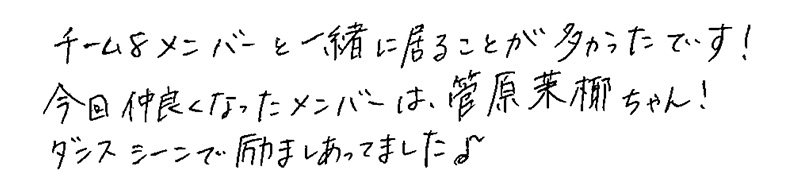 チーム8メンバーと一緒に居ることが多かったです!
今回仲良くなったメンバーは、菅原茉椰ちゃん!
ダンスシーンで励ましあってました♪